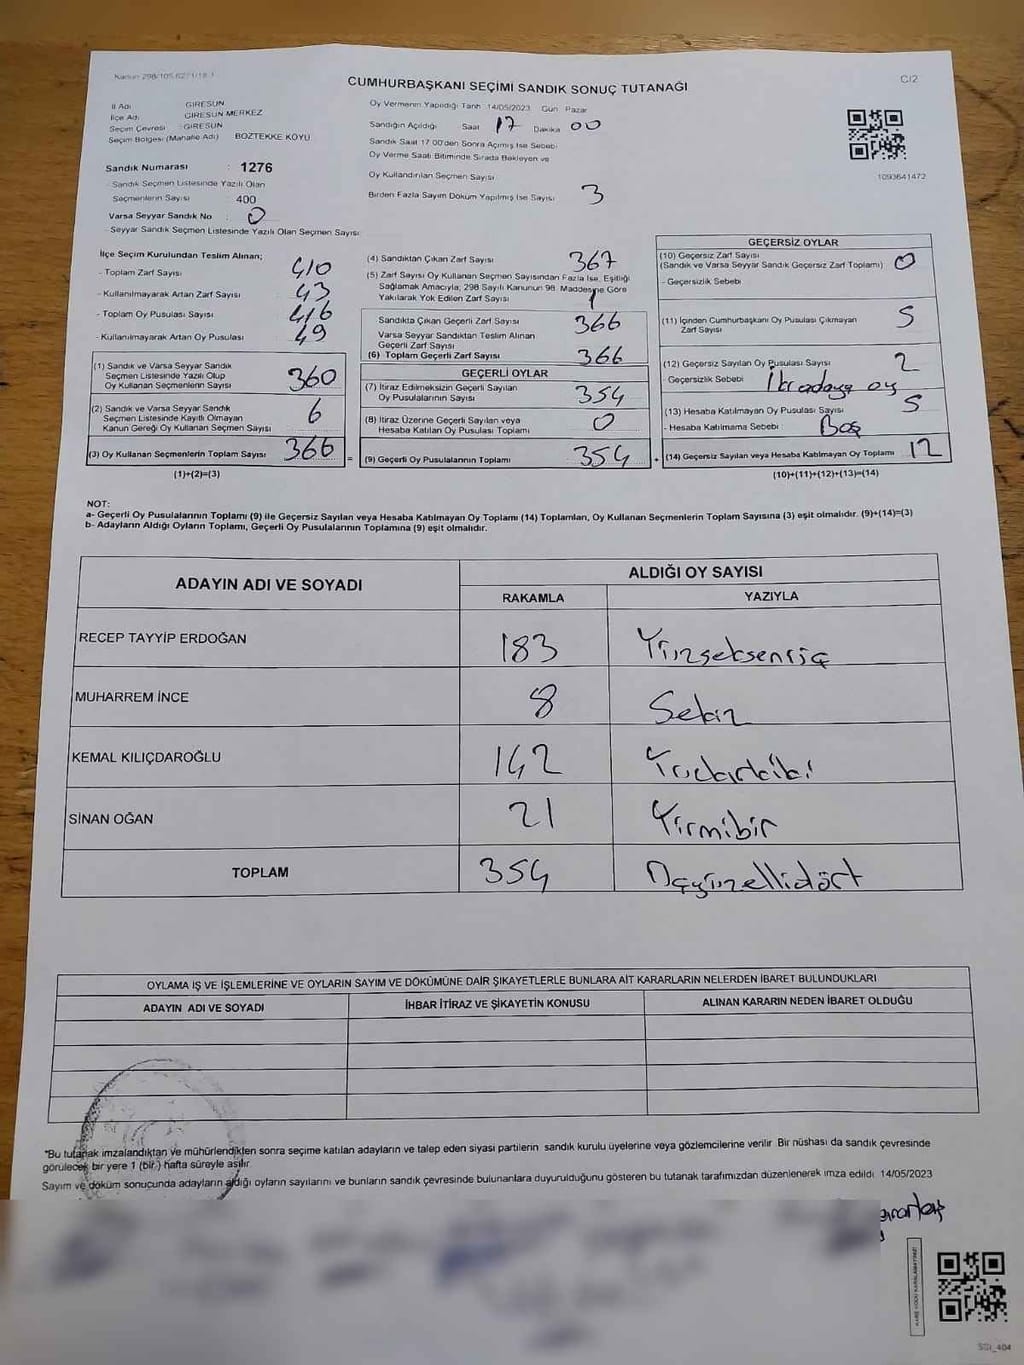 Kanun 298/105.6271/18-1
CUMHURBAŞKANI SEÇİMİ SANDIK SONUÇ TUTANAĞI
C/2
İl Adı : GİRESUN
İlçe Adı : GİRESUN MERKEZ
Seçim Çevresi : GİRESUN
Seçim Bölgesi (Mahalle Adı) BOZTEKKE KÖYÜ
Sandık Numarası : 1276
- Sandık Seçmen Listesinde Yazılı Olan
Seçmenlerin Sayısı : 400
Varsa Seyyar Sandık No : 0
- Seyyar Sandık Seçmen Listesinde Yazılı Olan Seçmen Sayısı
Oy Vermenin Yapıldığı Tarih 14/05/2023 Gün Pazar
Sandığın Açıldığı Saat 17 Dakika 00
Sandık Saat 17:00'den Sonra Açımış İse Sebebi
Oy Verme Saati Bitiminde Sırada Bekleyen ve
Oy Kullandırılan Seçmen Sayısı
Birden Fazla Sayım Döküm Yapılmış İse Sayısı 3
1093641472
İlçe Seçim Kurulundan Teslim Alınan;
- Toplam Zarf Sayısı 410
- Kullanılmayarak Artan Zarf Sayısı 43
- Toplam Oy Pusulası Sayısı 416
- Kullanılmayarak Artan Oy Pusulası 49
(1) Sandık ve Varsa Seyyar Sandık
Seçmen Listesinde Yazılı Olup
Oy Kullanan Seçmenlerin Sayısı 360
(2) Sandık ve Varsa Seyyar Sandık
Seçmen Listesinde Kayıtlı Olmayan
Kanun Gereği Oy Kullanan Seçmen Sayısı 6
(3) Oy Kullanan Seçmenlerin Toplam Sayısı 366 =
(1)+(2)=(3)
(4) Sandıktan Çıkan Zarf Sayısı 367
(5) Zarf Sayısı Oy Kullanan Seçmen Sayısından Fazla İse, Eşitliği
Sağlamak Amacıyla; 298 Sayılı Kanunun 98. Maddesine Göre
Yakılarak Yok Edilen Zarf Sayısı 1
Sandıkta Çıkan Geçerli Zarf Sayısı 366
Varsa Seyyar Sandıktan Teslim Alınan
Geçerli Zarf Sayısı
(6) Toplam Geçerli Zarf Sayısı 366
GEÇERLİ OYLAR
(7) İtiraz Edilmeksizin Geçerli Sayılan
Oy Pusulalarının Sayısı 354
(8) İtiraz Üzerine Geçerli Sayılan veya
Hesaba Katılan Oy Pusulası Toplamı 0
(9) Geçerli Oy Pusulalarının Toplamı 354 +
GEÇERSİZ OYLAR
(10) Geçersiz Zarf Sayısı
(Sandık ve Varsa Seyyar Sandık Geçersiz Zarf Toplamı) 0
- Geçersizlik Sebebi
(11) İçinden Cumhurbaşkanı Oy Pusulası Çıkmayan
Zarf Sayısı 5
(12) Geçersiz Sayılan Oy Pusulası Sayısı 2
- Geçersizlik Sebebi : İki adaya oy
(13) Hesaba Katılmayan Oy Pusulası Sayısı 5
- Hesaba Katılmama Sebebi : Boş
(14) Geçersiz Sayılan veya Hesaba Katılmayan Oy Toplamı 12
(10)+(11)+(12)+(13)=(14)
NOT:
a- Geçerli Oy Pusulalarının Toplamı (9) ile Geçersiz Sayılan veya Hesaba Katılmayan Oy Toplamı (14) Toplamları, Oy Kullanan Seçmenlerin Toplam Sayısına (3) eşit olmalıdır. (9)+(14)=(3)
b- Adayların Aldığı Oyların Toplamı, Geçerli Oy Pusulalarının Toplamına (9) eşit olmalıdır.
ADAYIN ADI VE SOYADI
ALDIĞI OY SAYISI
RAKAMLA YAZIYLA
RECEP TAYYİP ERDOĞAN 183 Yüzseksenüç
MUHARREM İNCE 8 Sekiz
KEMAL KILIÇDAROĞLU 142 Yüzkırkiki
SİNAN OĞAN 21 Yirmibir
TOPLAM 354 Üçyüzellidört
OYLAMA İŞ VE İŞLEMLERİNE VE OYLARIN SAYIM VE DÖKÜMÜNE DAİR ŞİKAYETLERLE BUNLARA AİT KARARLARIN NELERDEN İBARET BULUNDUKLARI
ADAYIN ADI VE SOYADI İHBAR İTİRAZ VE ŞİKAYETİN KONUSU ALINAN KARARIN NEDEN İBARET OLDUĞU
*Bu tutanak imzalandıktan ve mühürlendikten sonra seçime katılan adayların ve talep eden siyasi partilerin sandık kurulu üyelerine veya gözlemcilerine verilir. Bir nüshası da sandık çevresinde
görülecek bir yere 1 (bir.) hafta süreyle asılır.
Sayım ve döküm sonucunda adayların aldığı oyların sayılarını ve bunların sandık çevresinde bulunanlara duyurulduğunu gösteren bu tutanak tarafımızdan düzenlenerek imza edildi. 14/05/2023
KARE KODU KARALAMAYINIZ!
SSI_404